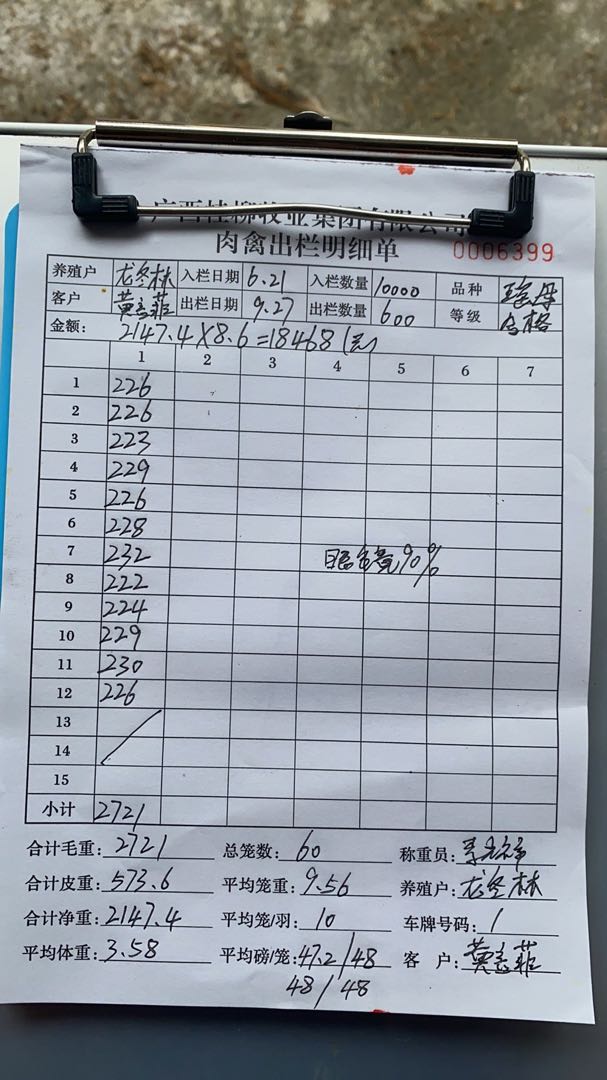 广西桂柳牧业集团有限公司
肉禽出栏明细单 0006399
养殖户 龙冬林 入栏日期 6.21 入栏数量 10000 品种
客户 黄 菲 出栏日期 9.27 出栏数量 600 等级 合格
金额: 2147.4×8.6=18468(元)
1 2 3 4 5 6 7
1 226
2 226
3 223
4 229
5 226
6 228
7 232 90%
8 222
9 224
10 229
11 230
12 226
13
14
15
小计 2721
合计毛重: 2721 总笼数: 60 称重员:
合计皮重: 573.6 平均笼重: 9.56 养殖户: 龙冬林
合计净重: 2147.4 平均笼/羽: 10 车牌号码: 1
平均体重: 3.58 平均磅/笼: 47.2/48 客 户: 黄 菲
48/48